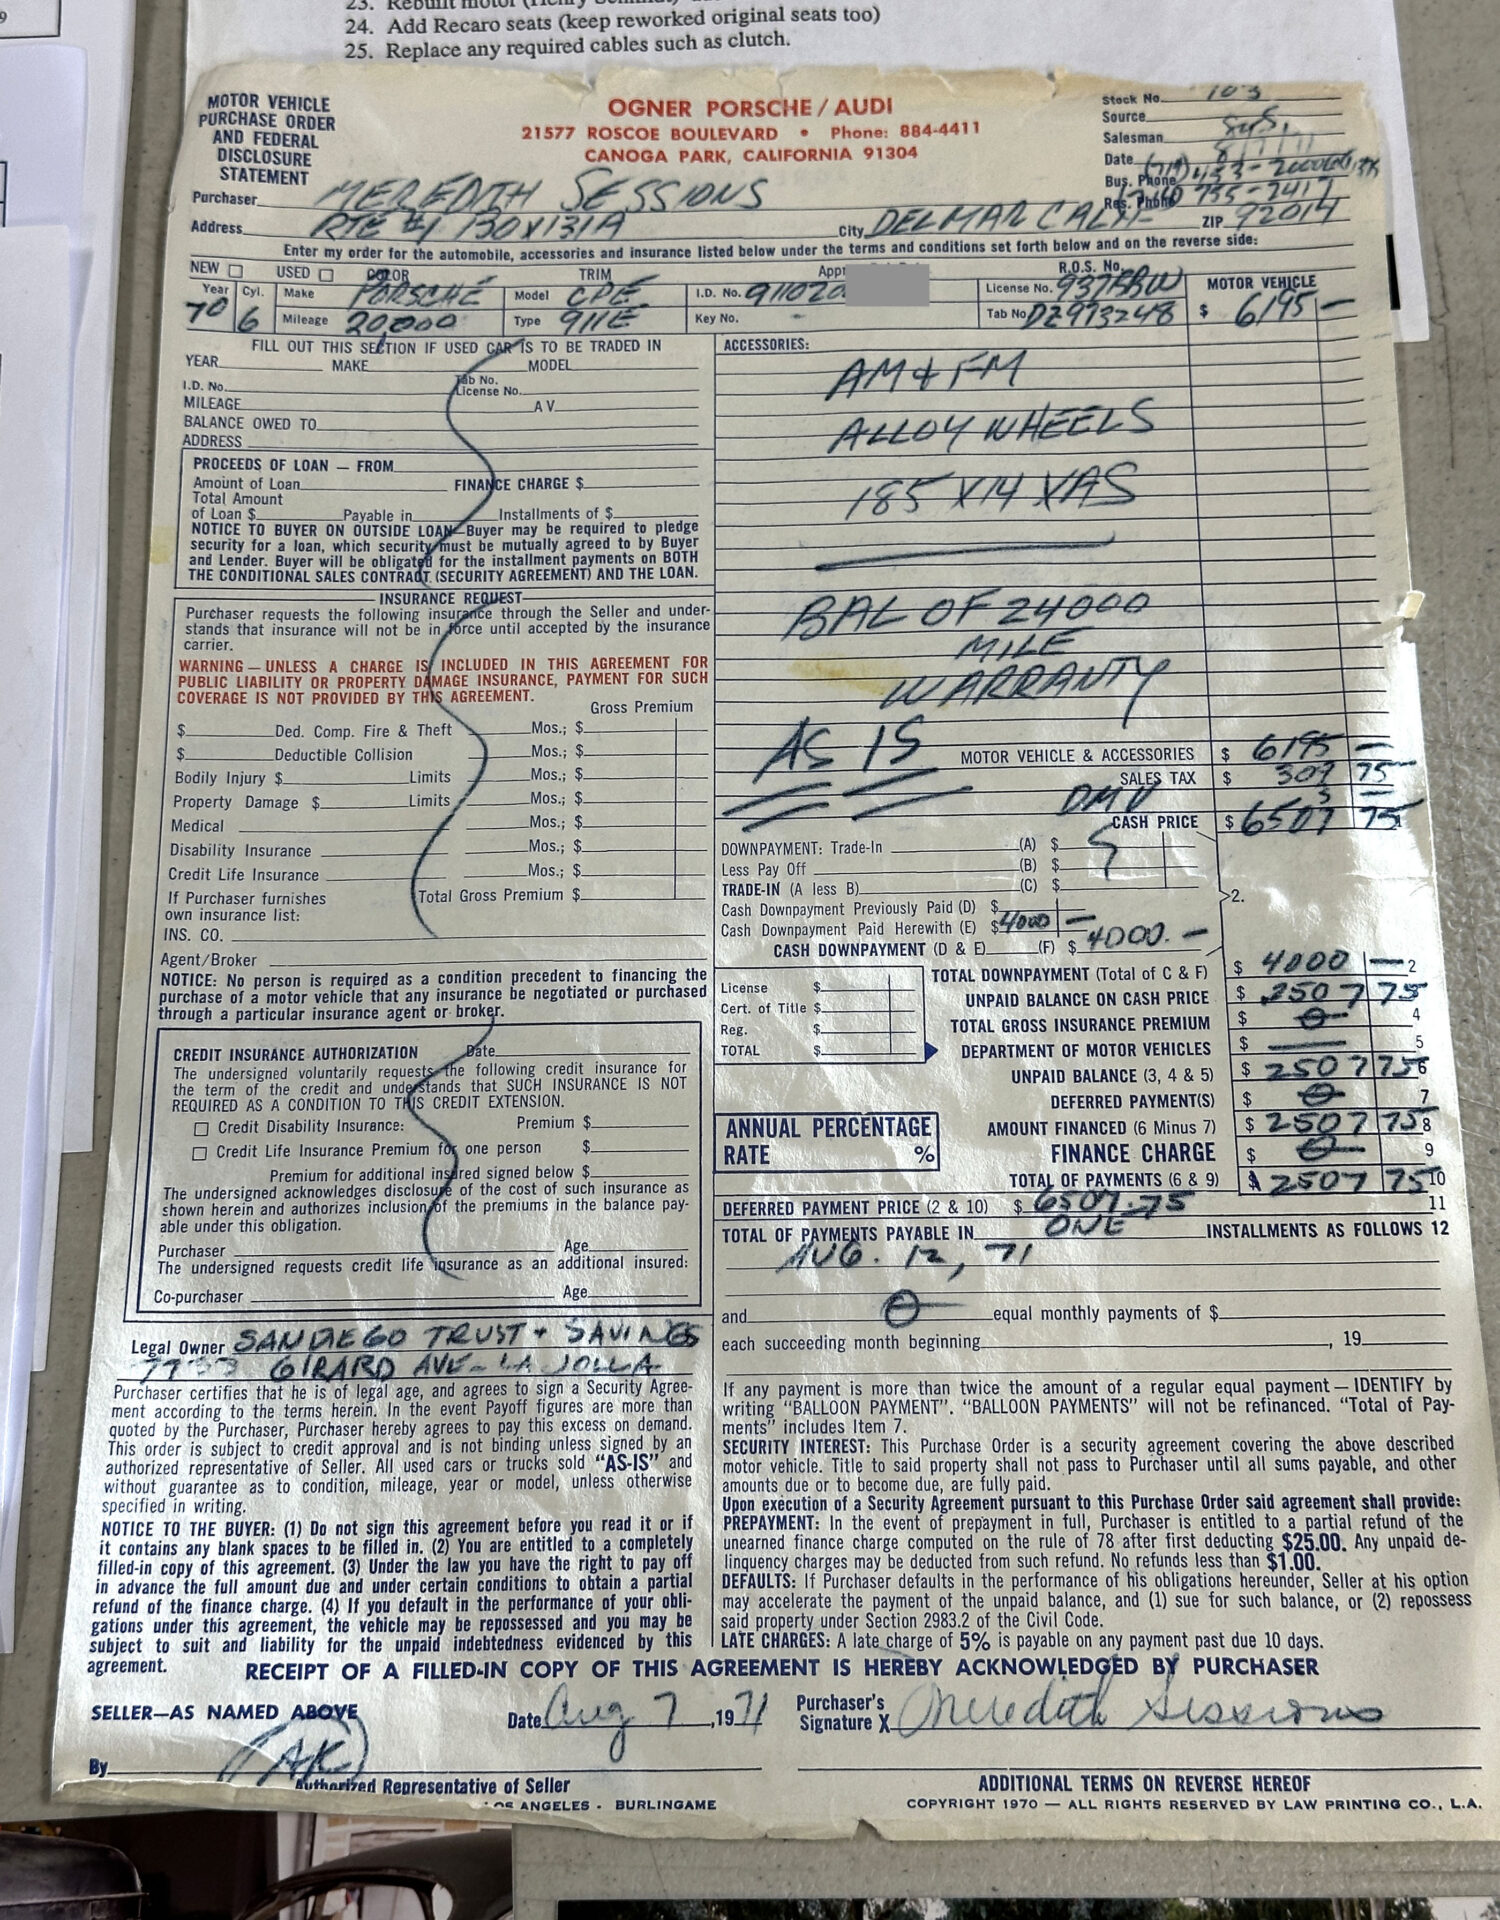 24. Add Recaro seats (keep reworked original seats too)
25. Replace any required cables such as clutch.
MOTOR VEHICLE
PURCHASE ORDER
AND FEDERAL
DISCLOSURE
STATEMENT
OGNER PORSCHE / AUDI
21577 ROSCOE BOULEVARD • Phone: 884-4411
CANOGA PARK, CALIFORNIA 91304
Stock No. 103
Source
Salesman
Date
Bus. Phone
Res. Phone 755-2417
Purchaser MEREDITH SESSIONS
Address RTE #1 BOX 131A City DELMAR CALIF ZIP 92014
Enter my order for the automobile, accessories and insurance listed below under the terms and conditions set forth below and on the reverse side:
NEW USED COLOR TRIM R.O.S. No. MOTOR VEHICLE
Year 70 Cyl. 6 Make PORSCHE Model CPE I.D. No. 911020 License No. 937BBW
Mileage 20,000 Type 911E Key No. - Tab No DZ973248 $ 6195 —
FILL OUT THIS SECTION IF USED CAR IS TO BE TRADED IN
YEAR MAKE MODEL
I.D. No. Tab No. License No.
MILEAGE A V
BALANCE OWED TO
ADDRESS
PROCEEDS OF LOAN — FROM
Amount of Loan FINANCE CHARGE $
Total Amount
of Loan $ Payable in Installments of $
NOTICE TO BUYER ON OUTSIDE LOAN—Buyer may be required to pledge
security for a loan, which security must be mutually agreed to by Buyer
and Lender. Buyer will be obligated for the installment payments on BOTH
THE CONDITIONAL SALES CONTRACT (SECURITY AGREEMENT) AND THE LOAN.
INSURANCE REQUEST
Purchaser requests the following insurance through the Seller and under-
stands that insurance will not be in force until accepted by the insurance
carrier.
WARNING — UNLESS A CHARGE IS INCLUDED IN THIS AGREEMENT FOR
PUBLIC LIABILITY OR PROPERTY DAMAGE INSURANCE, PAYMENT FOR SUCH
COVERAGE IS NOT PROVIDED BY THIS AGREEMENT.
Gross Premium
$ Ded. Comp. Fire & Theft Mos.; $
$ Deductible Collision Mos.; $
Bodily Injury $ Limits Mos.; $
Property Damage $ Limits Mos.; $
Medical Mos.; $
Disability Insurance Mos.; $
Credit Life Insurance Mos.; $
If Purchaser furnishes Total Gross Premium $
own insurance list:
INS. CO.
Agent/Broker
NOTICE: No person is required as a condition precedent to financing the
purchase of a motor vehicle that any insurance be negotiated or purchased
through a particular insurance agent or broker.
CREDIT INSURANCE AUTHORIZATION Date
The undersigned voluntarily requests the following credit insurance for
the term of the credit and understands that SUCH INSURANCE IS NOT
REQUIRED AS A CONDITION TO THIS CREDIT EXTENSION.
Credit Disability Insurance: Premium $
Credit Life Insurance Premium for one person $
Premium for additional insured signed below $
The undersigned acknowledges disclosure of the cost of such insurance as
shown herein and authorizes inclusion of the premiums in the balance pay-
able under this obligation.
Purchaser Age
The undersigned requests credit life insurance as an additional insured:
Co-purchaser Age
Legal Owner SAN DIEGO TRUST + SAVINGS
GIRARD AVE - LA JOLLA
Purchaser certifies that he is of legal age, and agrees to sign a Security Agree-
ment according to the terms herein. In the event Payoff figures are more than
quoted by the Purchaser, Purchaser hereby agrees to pay this excess on demand.
This order is subject to credit approval and is not binding unless signed by an
authorized representative of Seller. All used cars or trucks sold "AS-IS" and
without guarantee as to condition, mileage, year or model, unless otherwise
specified in writing.
NOTICE TO THE BUYER: (1) Do not sign this agreement before you read it or if
it contains any blank spaces to be filled in. (2) You are entitled to a completely
filled-in copy of this agreement. (3) Under the law you have the right to pay off
in advance the full amount due and under certain conditions to obtain a partial
refund of the finance charge. (4) If you default in the performance of your obli-
gations under this agreement, the vehicle may be repossessed and you may be
subject to suit and liability for the unpaid indebtedness evidenced by this
agreement.
ACCESSORIES:
AM & FM
ALLOY WHEELS
185 X14 XAS
BAL OF 24000
MILE
WARRANTY
AS IS
MOTOR VEHICLE & ACCESSORIES $ 6195 —
SALES TAX $ 309 75
DMV 3 —
CASH PRICE $ 6507 75
DOWNPAYMENT: Trade-In (A) $
Less Pay Off (B) $
TRADE-IN (A less B) (C) $ 2.
Cash Downpayment Previously Paid (D) $
Cash Downpayment Paid Herewith (E) $ 4000 —
CASH DOWNPAYMENT (D & E) (F) $ 4000. —
License $
Cert. of Title $
Reg. $
TOTAL $
TOTAL DOWNPAYMENT (Total of C & F) $ 4000 — 2
UNPAID BALANCE ON CASH PRICE $ 2507 75
TOTAL GROSS INSURANCE PREMIUM $ 0 4
DEPARTMENT OF MOTOR VEHICLES $ — 5
UNPAID BALANCE (3, 4 & 5) $ 2507 75 6
DEFERRED PAYMENT(S) $ 0 7
AMOUNT FINANCED (6 Minus 7) $ 2507 75 8
ANNUAL PERCENTAGE
RATE %
FINANCE CHARGE $ 0 9
TOTAL OF PAYMENTS (6 & 9) $ 2507 75 10
DEFERRED PAYMENT PRICE (2 & 10) $ 6507.75 11
TOTAL OF PAYMENTS PAYABLE IN ONE INSTALLMENTS AS FOLLOWS 12
AUG. 12, 71
and 0 equal monthly payments of $
each succeeding month beginning , 19
If any payment is more than twice the amount of a regular equal payment — IDENTIFY by
writing "BALLOON PAYMENT". "BALLOON PAYMENTS" will not be refinanced. "Total of Pay-
ments" includes Item 7.
SECURITY INTEREST: This Purchase Order is a security agreement covering the above described
motor vehicle. Title to said property shall not pass to Purchaser until all sums payable, and other
amounts due or to become due, are fully paid.
Upon execution of a Security Agreement pursuant to this Purchase Order said agreement shall provide:
PREPAYMENT: In the event of prepayment in full, Purchaser is entitled to a partial refund of the
unearned finance charge computed on the rule of 78 after first deducting $25.00. Any unpaid de-
linquency charges may be deducted from such refund. No refunds less than $1.00.
DEFAULTS: If Purchaser defaults in the performance of his obligations hereunder, Seller at his option
may accelerate the payment of the unpaid balance, and (1) sue for such balance, or (2) repossess
said property under Section 2983.2 of the Civil Code.
LATE CHARGES: A late charge of 5% is payable on any payment past due 10 days.
RECEIPT OF A FILLED-IN COPY OF THIS AGREEMENT IS HEREBY ACKNOWLEDGED BY PURCHASER
SELLER—AS NAMED ABOVE Date Aug 7, 1971 Purchaser's Signature X Meredith Sessions
By
Authorized Representative of Seller ADDITIONAL TERMS ON REVERSE HEREOF
ANGELES - BURLINGAME COPYRIGHT 1970 — ALL RIGHTS RESERVED BY LAW PRINTING CO., L.A.